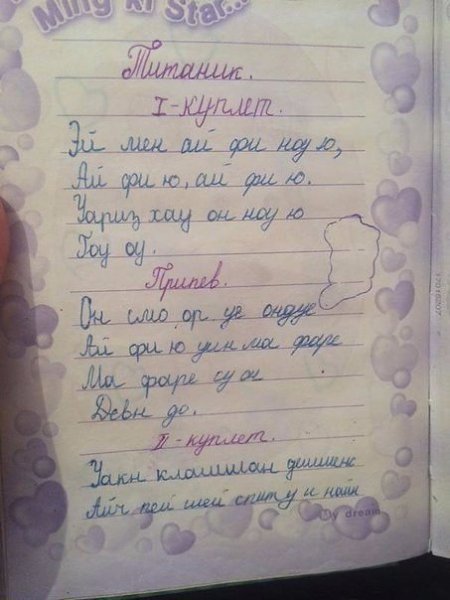 Ming ki Star...
Титаник.
I-куплет.
Эй мен ай фи ноу ю,
Ай фи ю, ай фи ю.
Уариз хау он ноу ю
Гоу оу.
Припев.
Он смо ор уе ондуе
Ай фи ю уин ма фаре
Ма фаре су он
Девн до.
II-куплет.
Уакн клашшан дешшенс
Айч пей шей спит у и найн
My dream